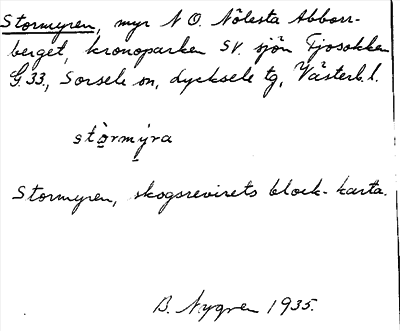 Stormyren, myr N O. Nölesta Abborr-
berget, kronoparken SV. sjön Tjosokken
G.33, Sorsele sn, Lycksele tg, Västerb.l.
stòrmýra
Stormyren, skogsrevirets block-karta.
B. Nygren 1935.